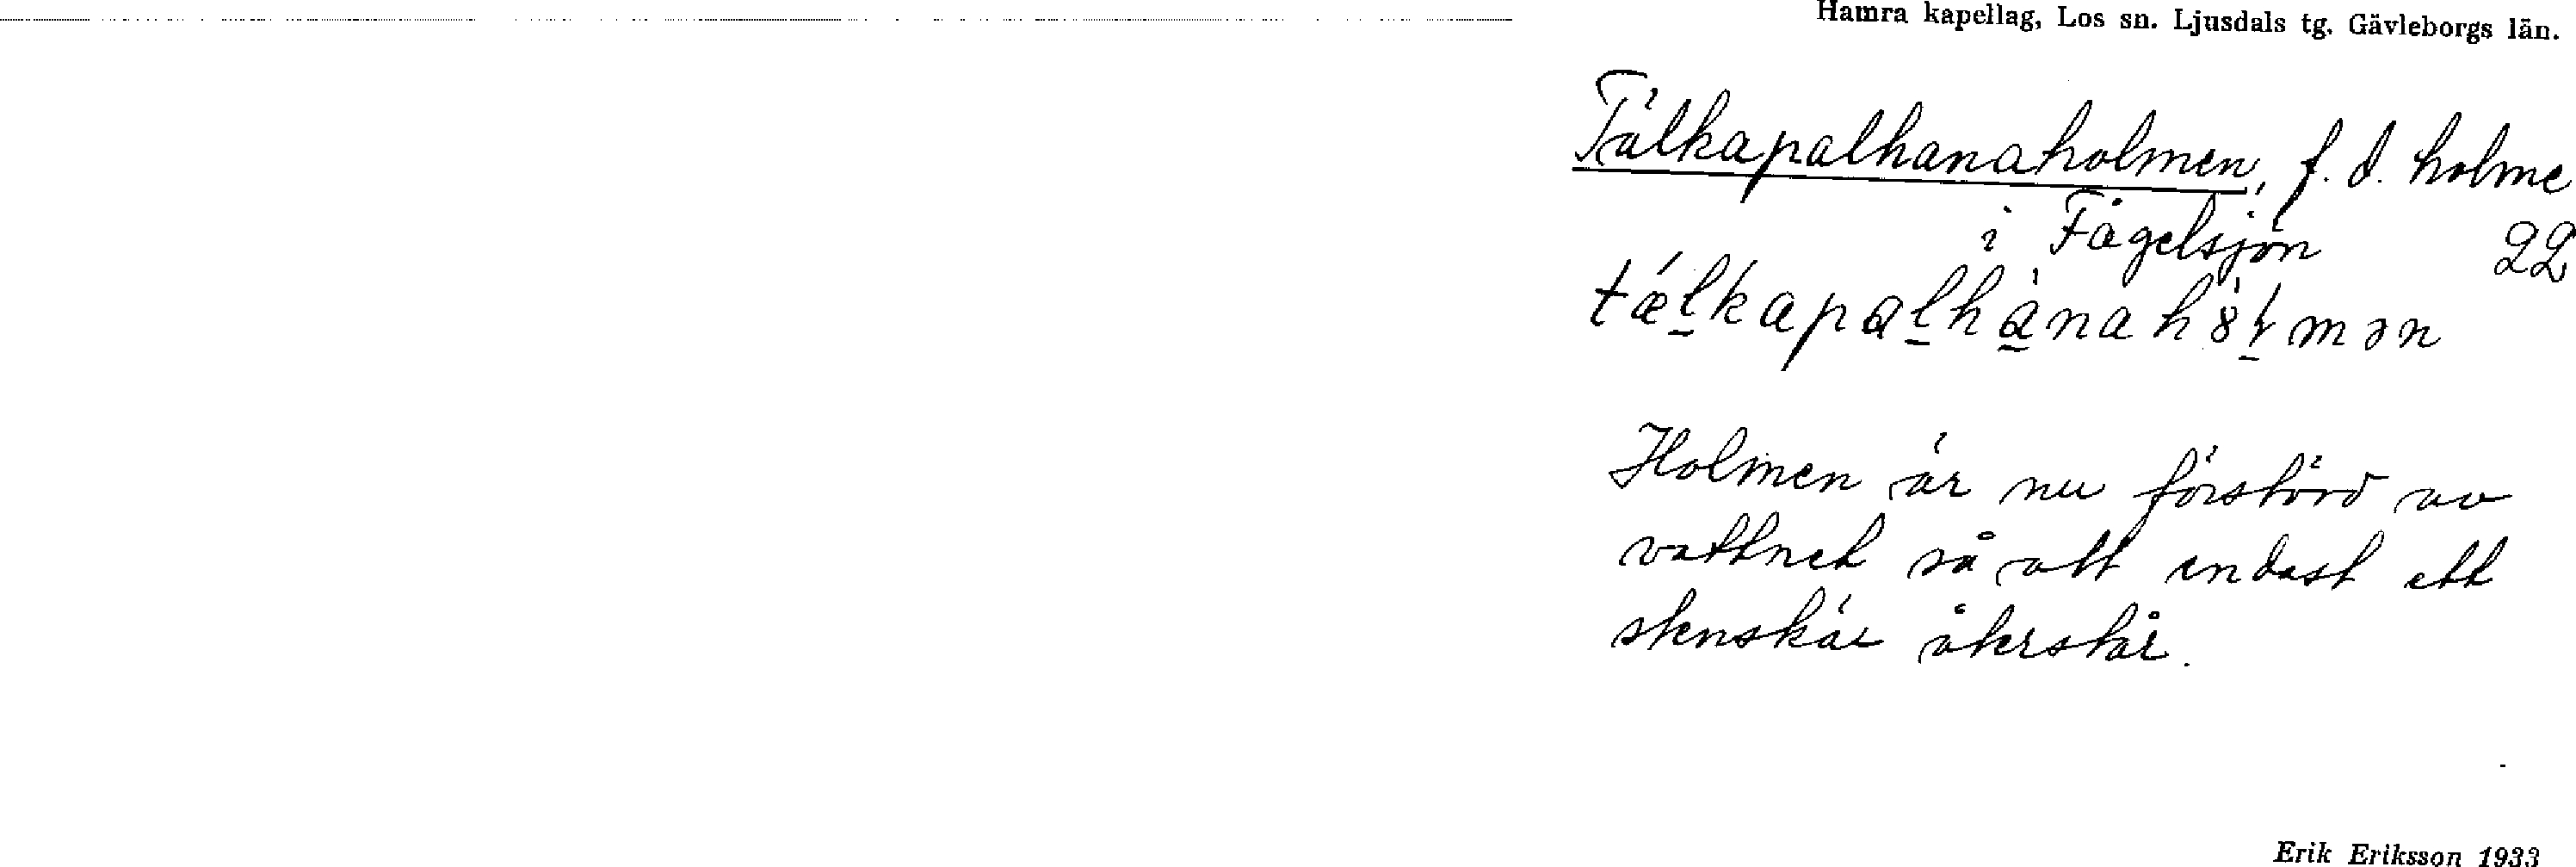 Hamra kapellag, Los sn. Ljusdals tg. Gävleborgs län.
Tälkapalhanaholmen, f. d. holme
i Fågelsjön 22
tǽlkapalhànahò̀lmən
Holmen är nu förstörd av
vattnet så att endast ett
stenskär återstår.
Erik Eriksson 1933